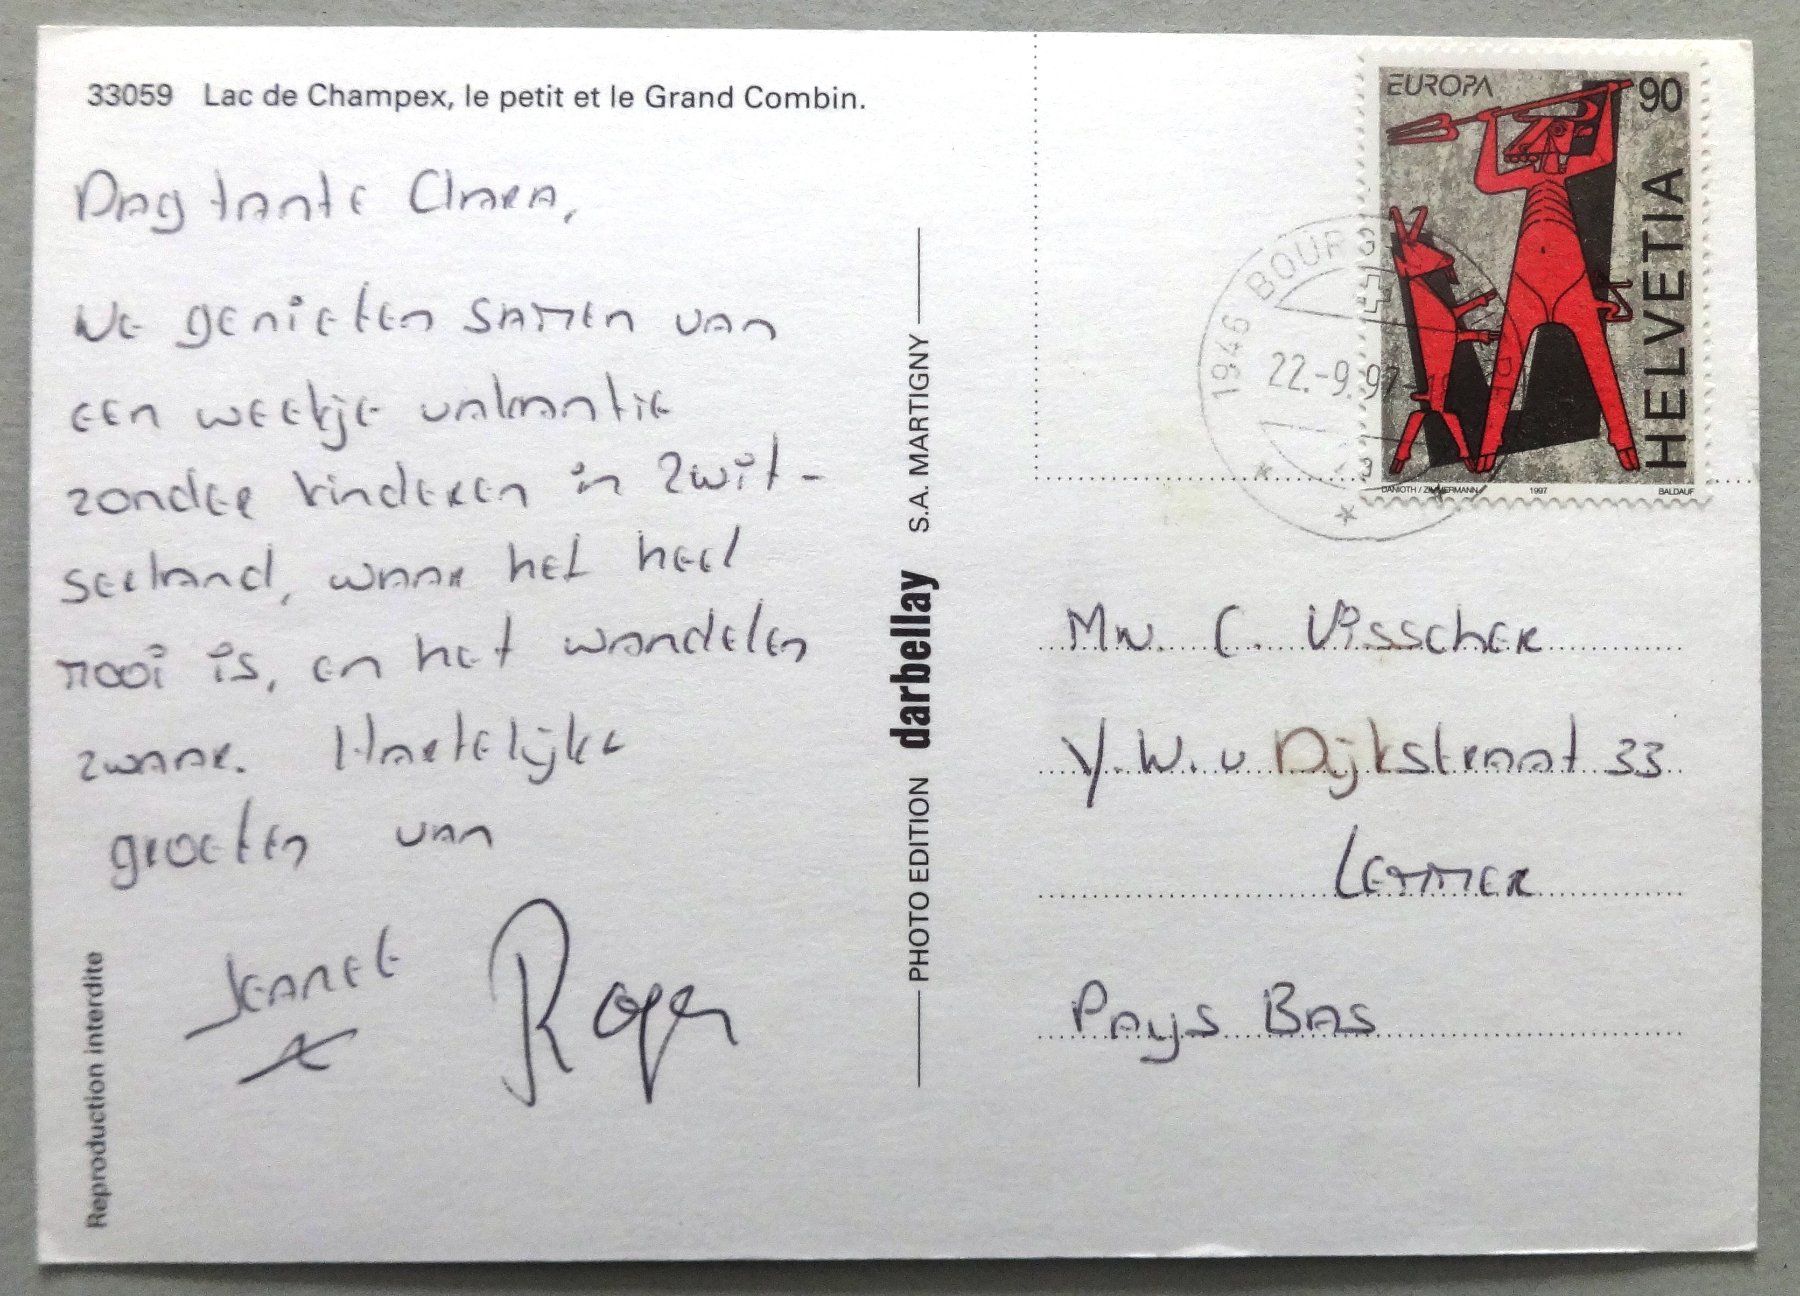 33059 Lac de Champex, le petit et le Grand Combin.
Dag tante Clara,
We genieten samen van
een weekje vakantie
zonder kinderen in Zwit-
serland, waar het heel
mooi is, en het wandelen
zwaar. Hartelijke
groeten van
Jeanet Roger
x
Reproduction interdite
PHOTO EDITION darbellay S.A. MARTIGNY
EUROPA 90
HELVETIA
DANIOTH / ZIMMERMANN 1997 BALDAUF
1946 BOURG
22.-9.97
Mw. C. Visscher
Y.W. v Dijkstraat 33
Lemmer
Pays Bas